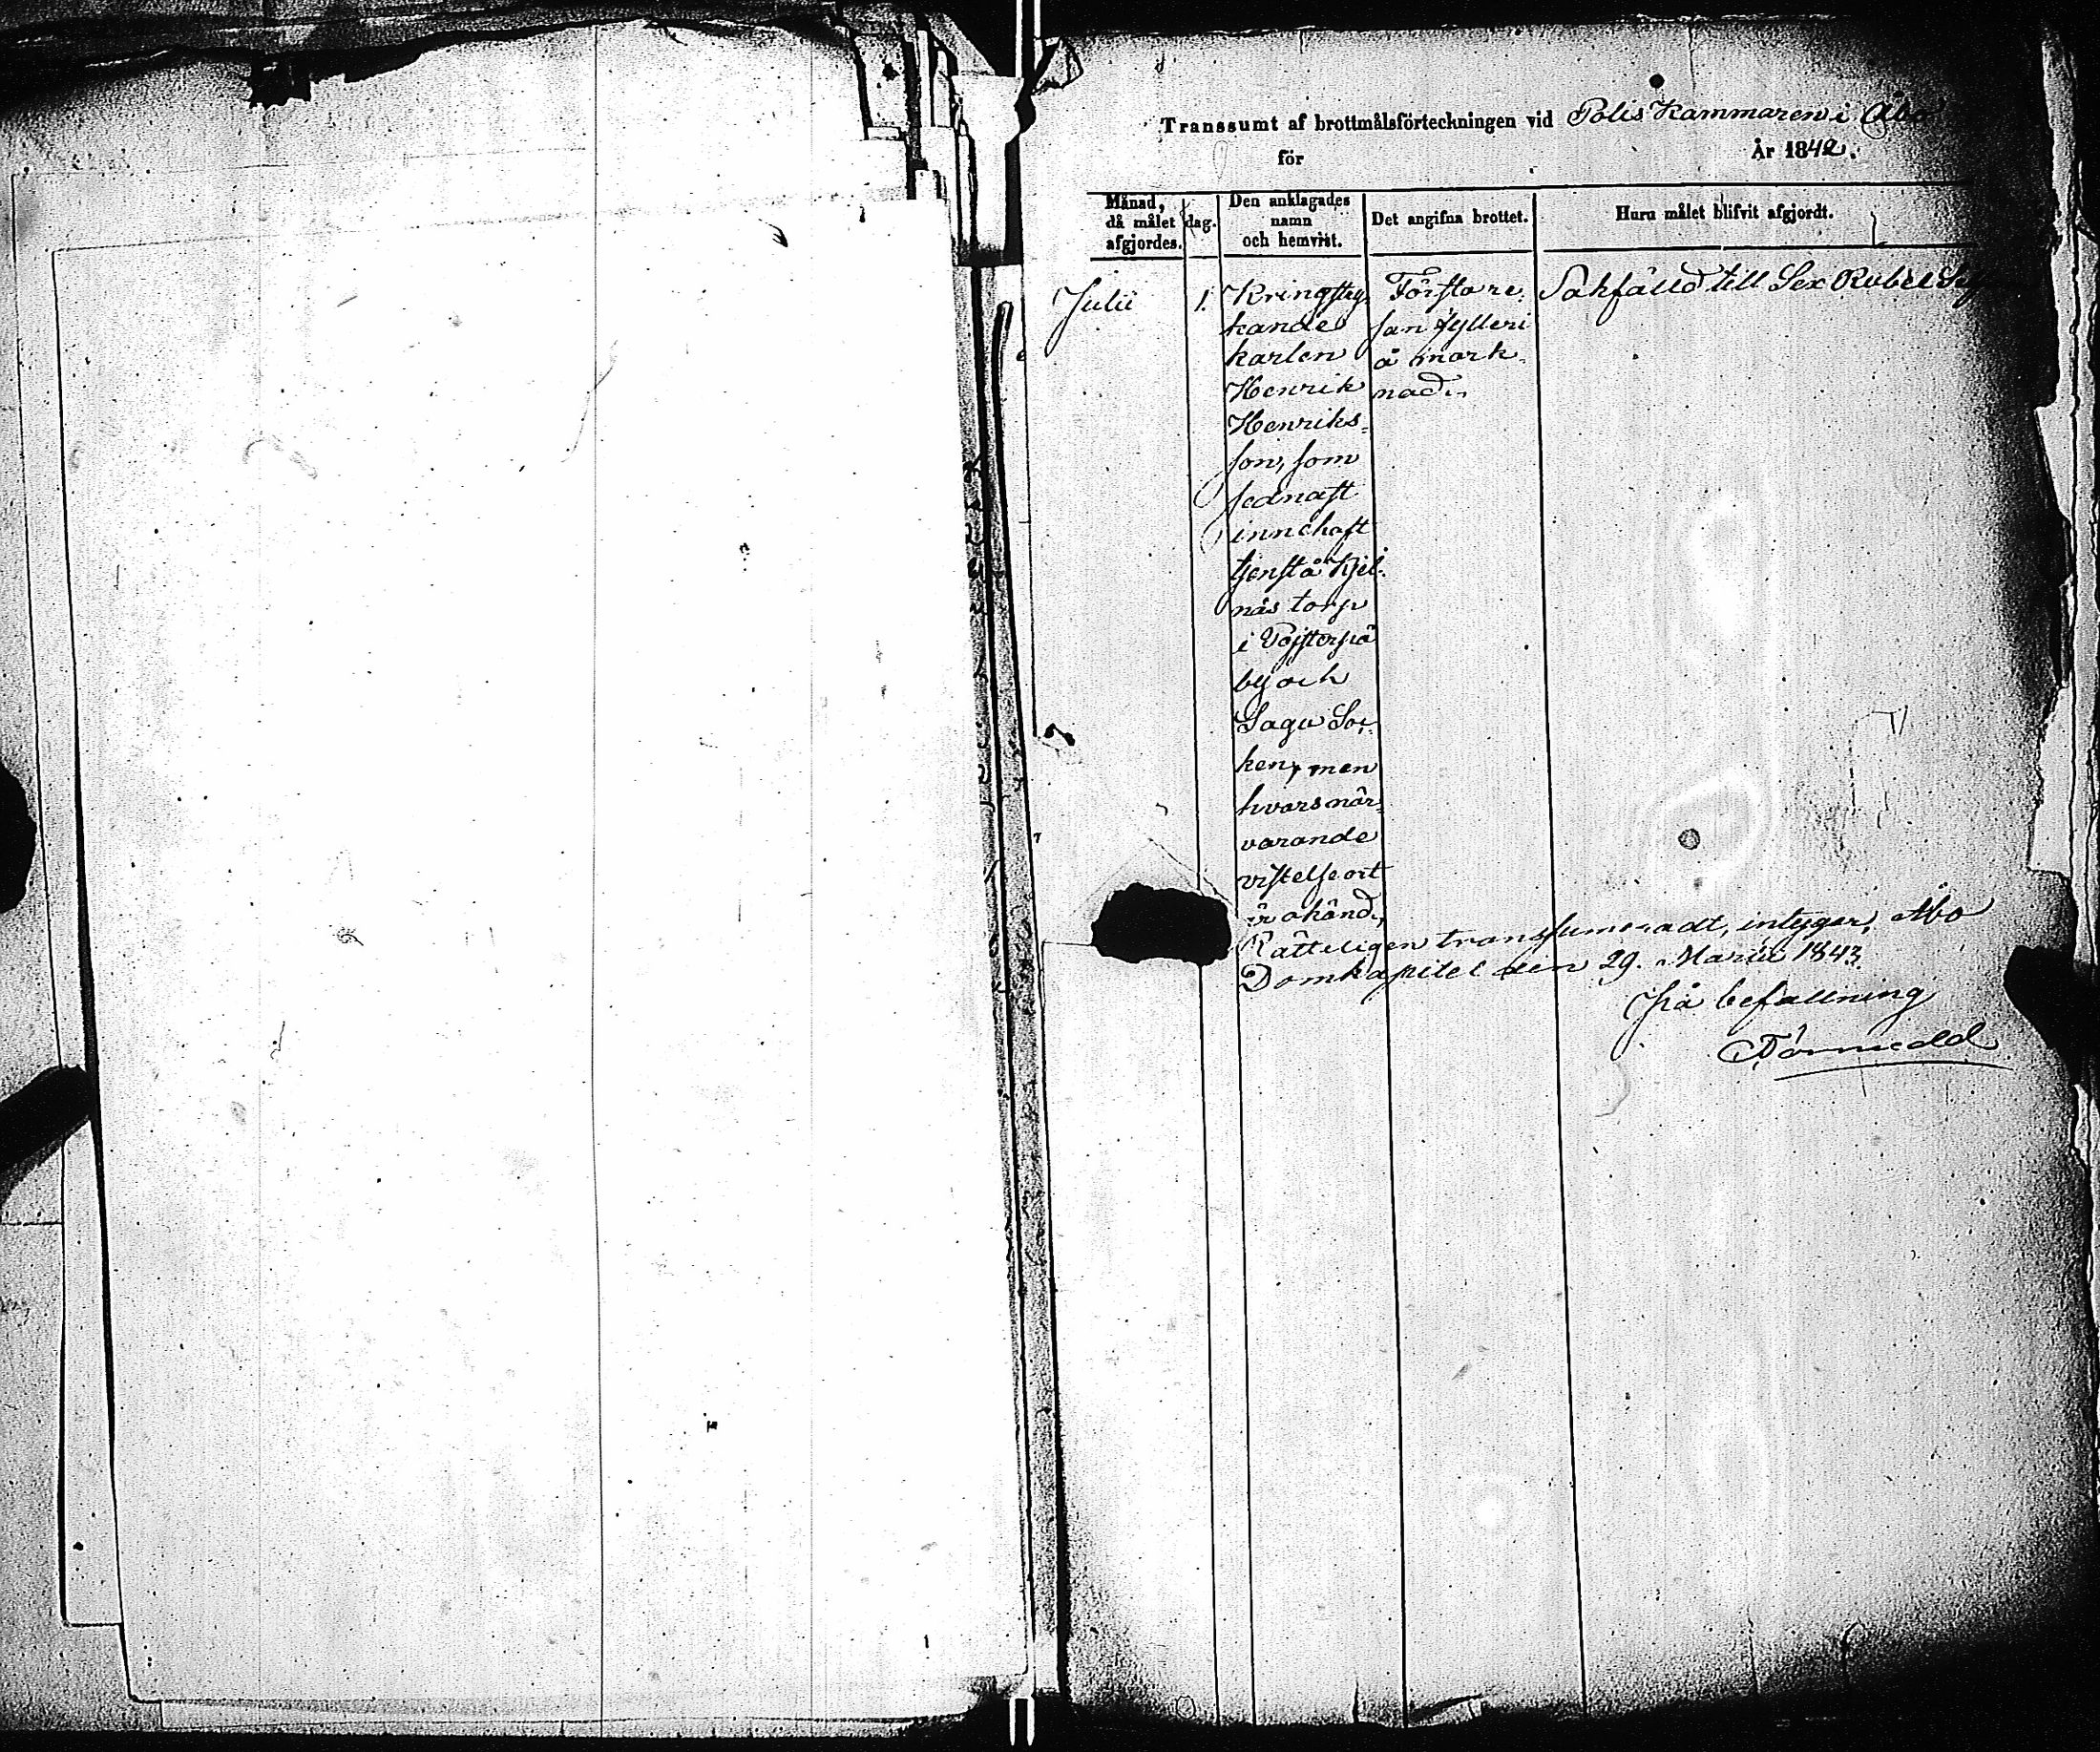 Transsumt af brottmålsförteckningen vid Polis Kammaren i Åbo
för År 1842.
Månad, då målet afgjordes. dag. Den anklagades namn och hemvist. Det angifna brottet. Huru målet blifvit afgjordt.
Julii 1. Kringstry- Första re- Sakfälld till Sex Rubel
kande san fylleri
karlen å mark-
Henrik nad.
Henriks-
son, som
sednast
innehaft
tjenst å Kjil-
näs torp
i
by och
Sagu Soc-
ken, men
hvars när-
varande
vistelseort
är okänd,
Rätteligen transsumeradt, intygar, Åbo
Domkapitel den 29. Martii 1843.
På befallning